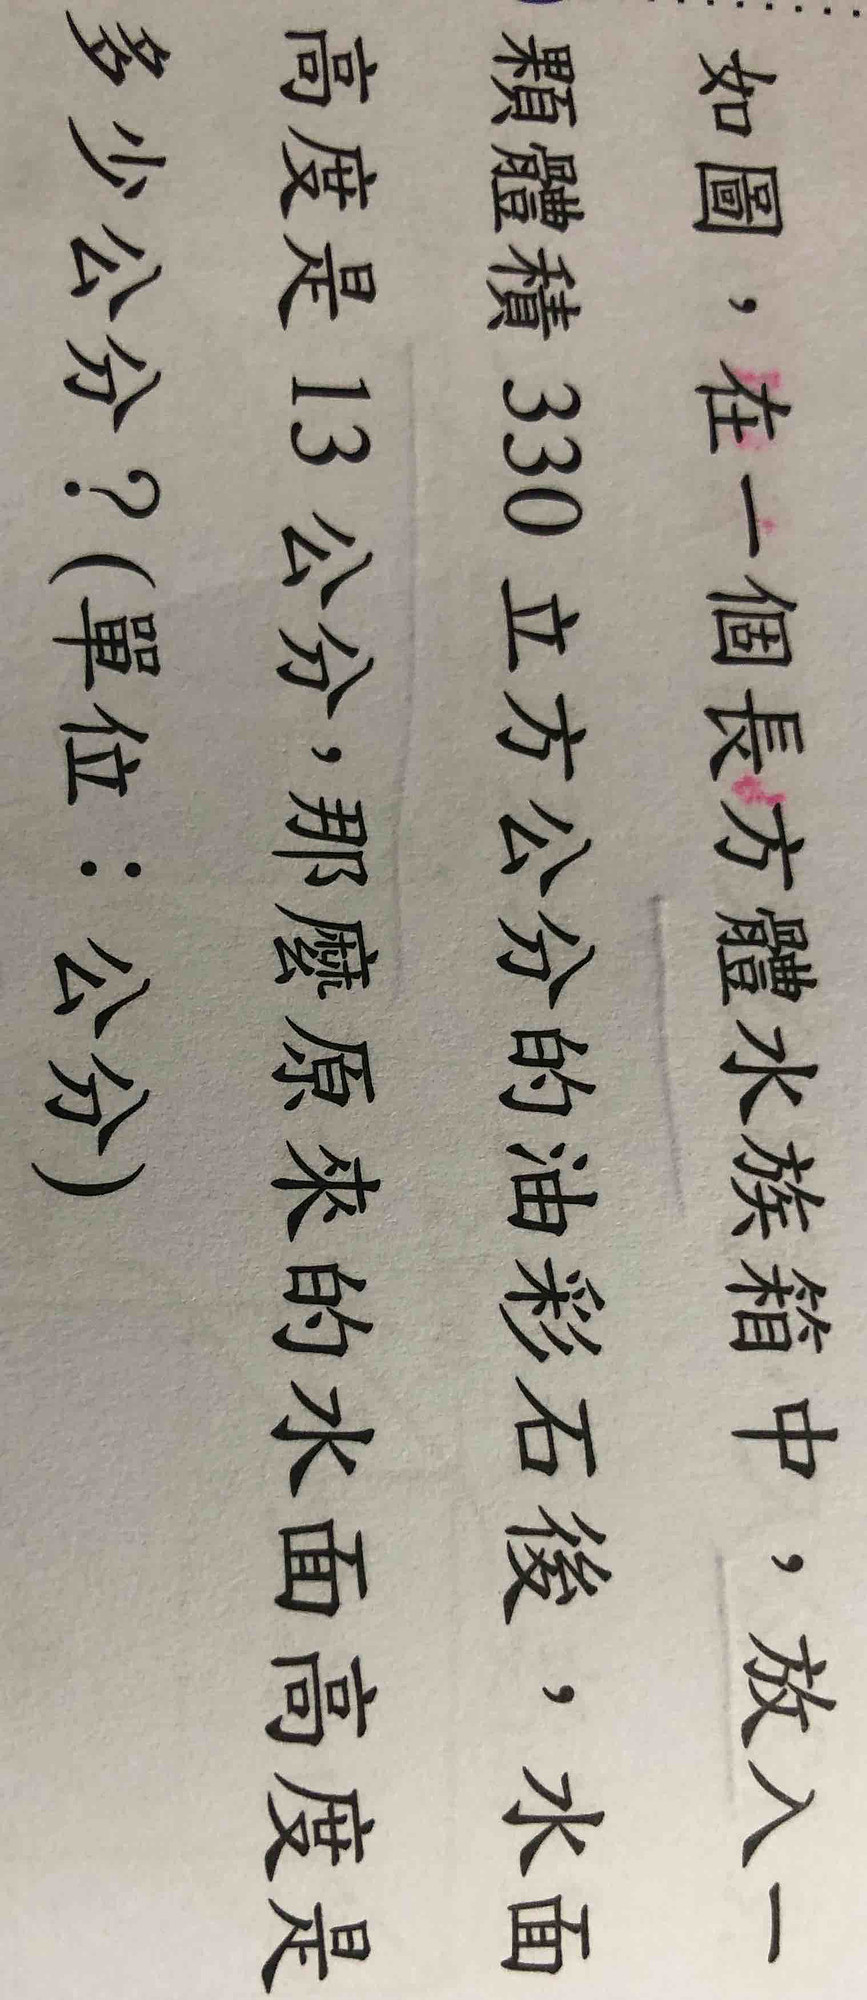 如圖，在一個長方體水族箱中，放入一
顆體積 330 立方公分的油彩石後，水面
高度是 13 公分，那麼原來的水面高度是
多少公分？(單位：公分)